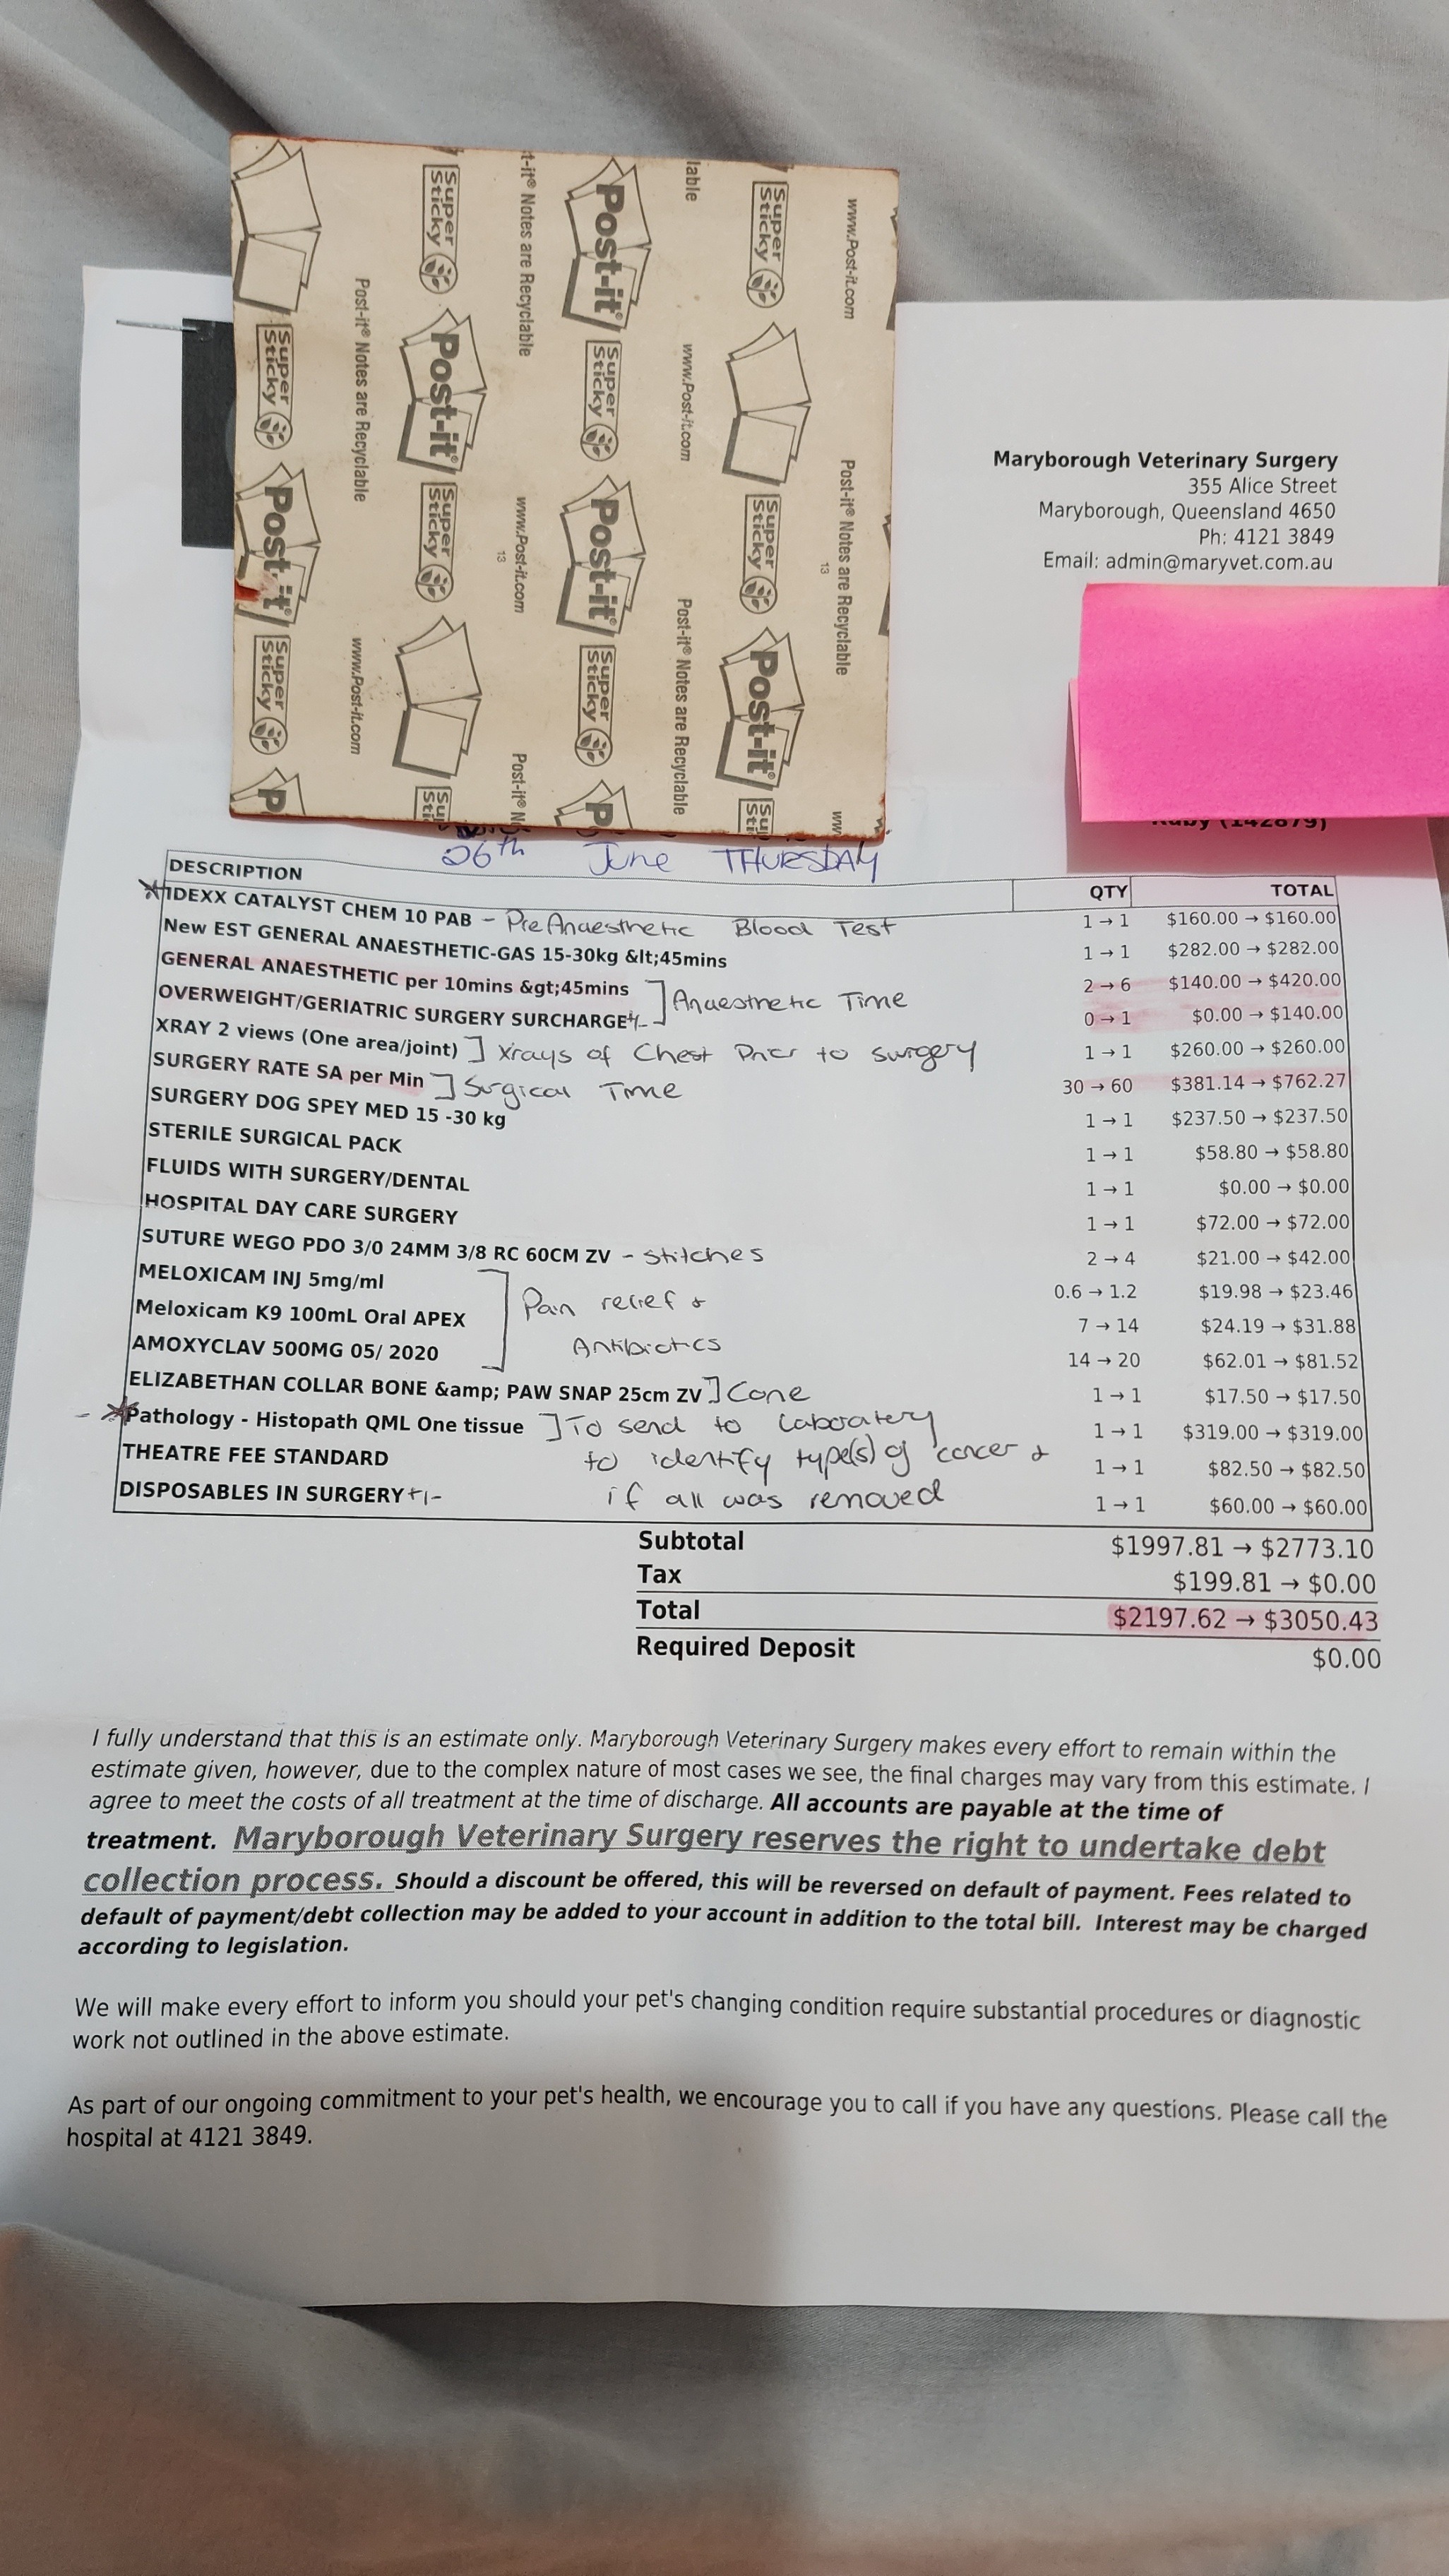 Super Sticky
Post-it®
Post-it® Notes are Recyclable
www.Post-it.com
13
Maryborough Veterinary Surgery
355 Alice Street
Maryborough, Queensland 4650
Ph: 4121 3849
Email: admin@maryvet.com.au
Ruby (142879)
26th June THURSDAY
DESCRIPTION QTY TOTAL
IDEXX CATALYST CHEM 10 PAB - Pre Anaesthetic Blood Test 1 → 1 $160.00 → $160.00
New EST GENERAL ANAESTHETIC-GAS 15-30kg &lt;45mins 1 → 1 $282.00 → $282.00
GENERAL ANAESTHETIC per 10mins &gt;45mins 2 → 6 $140.00 → $420.00
OVERWEIGHT/GERIATRIC SURGERY SURCHARGE +/- ] Anaesthetic Time 0 → 1 $0.00 → $140.00
XRAY 2 views (One area/joint) ] Xrays of Chest Prior to surgery 1 → 1 $260.00 → $260.00
SURGERY RATE SA per Min ] Surgical Time 30 → 60 $381.14 → $762.27
SURGERY DOG SPEY MED 15 -30 kg 1 → 1 $237.50 → $237.50
STERILE SURGICAL PACK 1 → 1 $58.80 → $58.80
FLUIDS WITH SURGERY/DENTAL 1 → 1 $0.00 → $0.00
HOSPITAL DAY CARE SURGERY 1 → 1 $72.00 → $72.00
SUTURE WEGO PDO 3/0 24MM 3/8 RC 60CM ZV - stitches 2 → 4 $21.00 → $42.00
MELOXICAM INJ 5mg/ml 0.6 → 1.2 $19.98 → $23.46
Meloxicam K9 100mL Oral APEX ] Pain relief & 7 → 14 $24.19 → $31.88
AMOXYCLAV 500MG 05/ 2020 Antibiotics 14 → 20 $62.01 → $81.52
ELIZABETHAN COLLAR BONE &amp; PAW SNAP 25cm ZV ] Cone 1 → 1 $17.50 → $17.50
Pathology - Histopath QML One tissue ] To send to laboratery 1 → 1 $319.00 → $319.00
THEATRE FEE STANDARD to identify type(s) of cancer & 1 → 1 $82.50 → $82.50
DISPOSABLES IN SURGERY +/- if all was removed 1 → 1 $60.00 → $60.00
Subtotal $1997.81 → $2773.10
Tax $199.81 → $0.00
Total $2197.62 → $3050.43
Required Deposit $0.00
I fully understand that this is an estimate only. Maryborough Veterinary Surgery makes every effort to remain within the
estimate given, however, due to the complex nature of most cases we see, the final charges may vary from this estimate. I
agree to meet the costs of all treatment at the time of discharge. All accounts are payable at the time of
treatment. Maryborough Veterinary Surgery reserves the right to undertake debt
collection process. Should a discount be offered, this will be reversed on default of payment. Fees related to
default of payment/debt collection may be added to your account in addition to the total bill. Interest may be charged
according to legislation.
We will make every effort to inform you should your pet's changing condition require substantial procedures or diagnostic
work not outlined in the above estimate.
As part of our ongoing commitment to your pet's health, we encourage you to call if you have any questions. Please call the
hospital at 4121 3849.